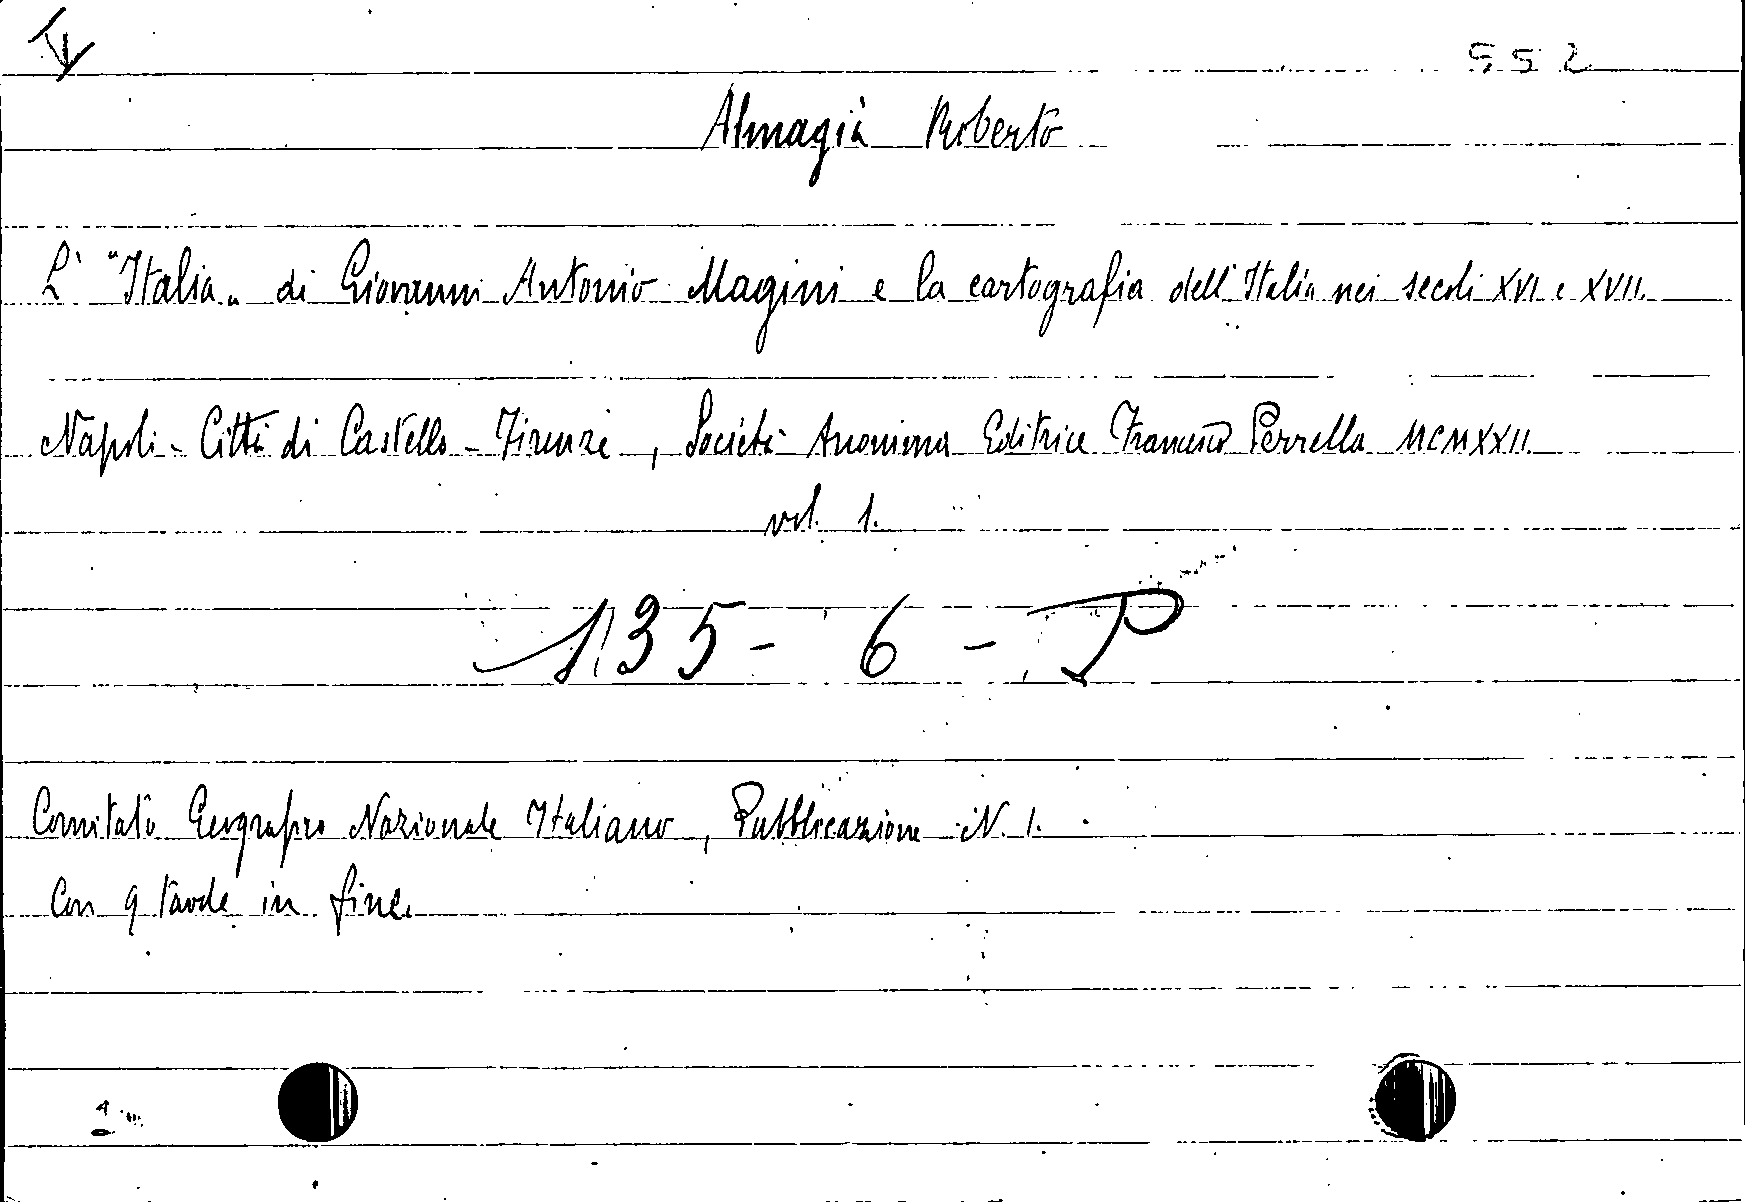 552
Almagià Roberto
L' "Italia„ di Giovanni Antonio Magini e la cartografia dell'Italia nei secoli XVI e XVII.
Napoli - Città di Castello - Firenze, Società Anonima Editrice Francesco Perrella MCMXXII.
vol. 1.
135 - 6 - P
Comitato Geografico Nazionale Italiano, Pubblicazione N. 1.
Con 9 tavole in fine.